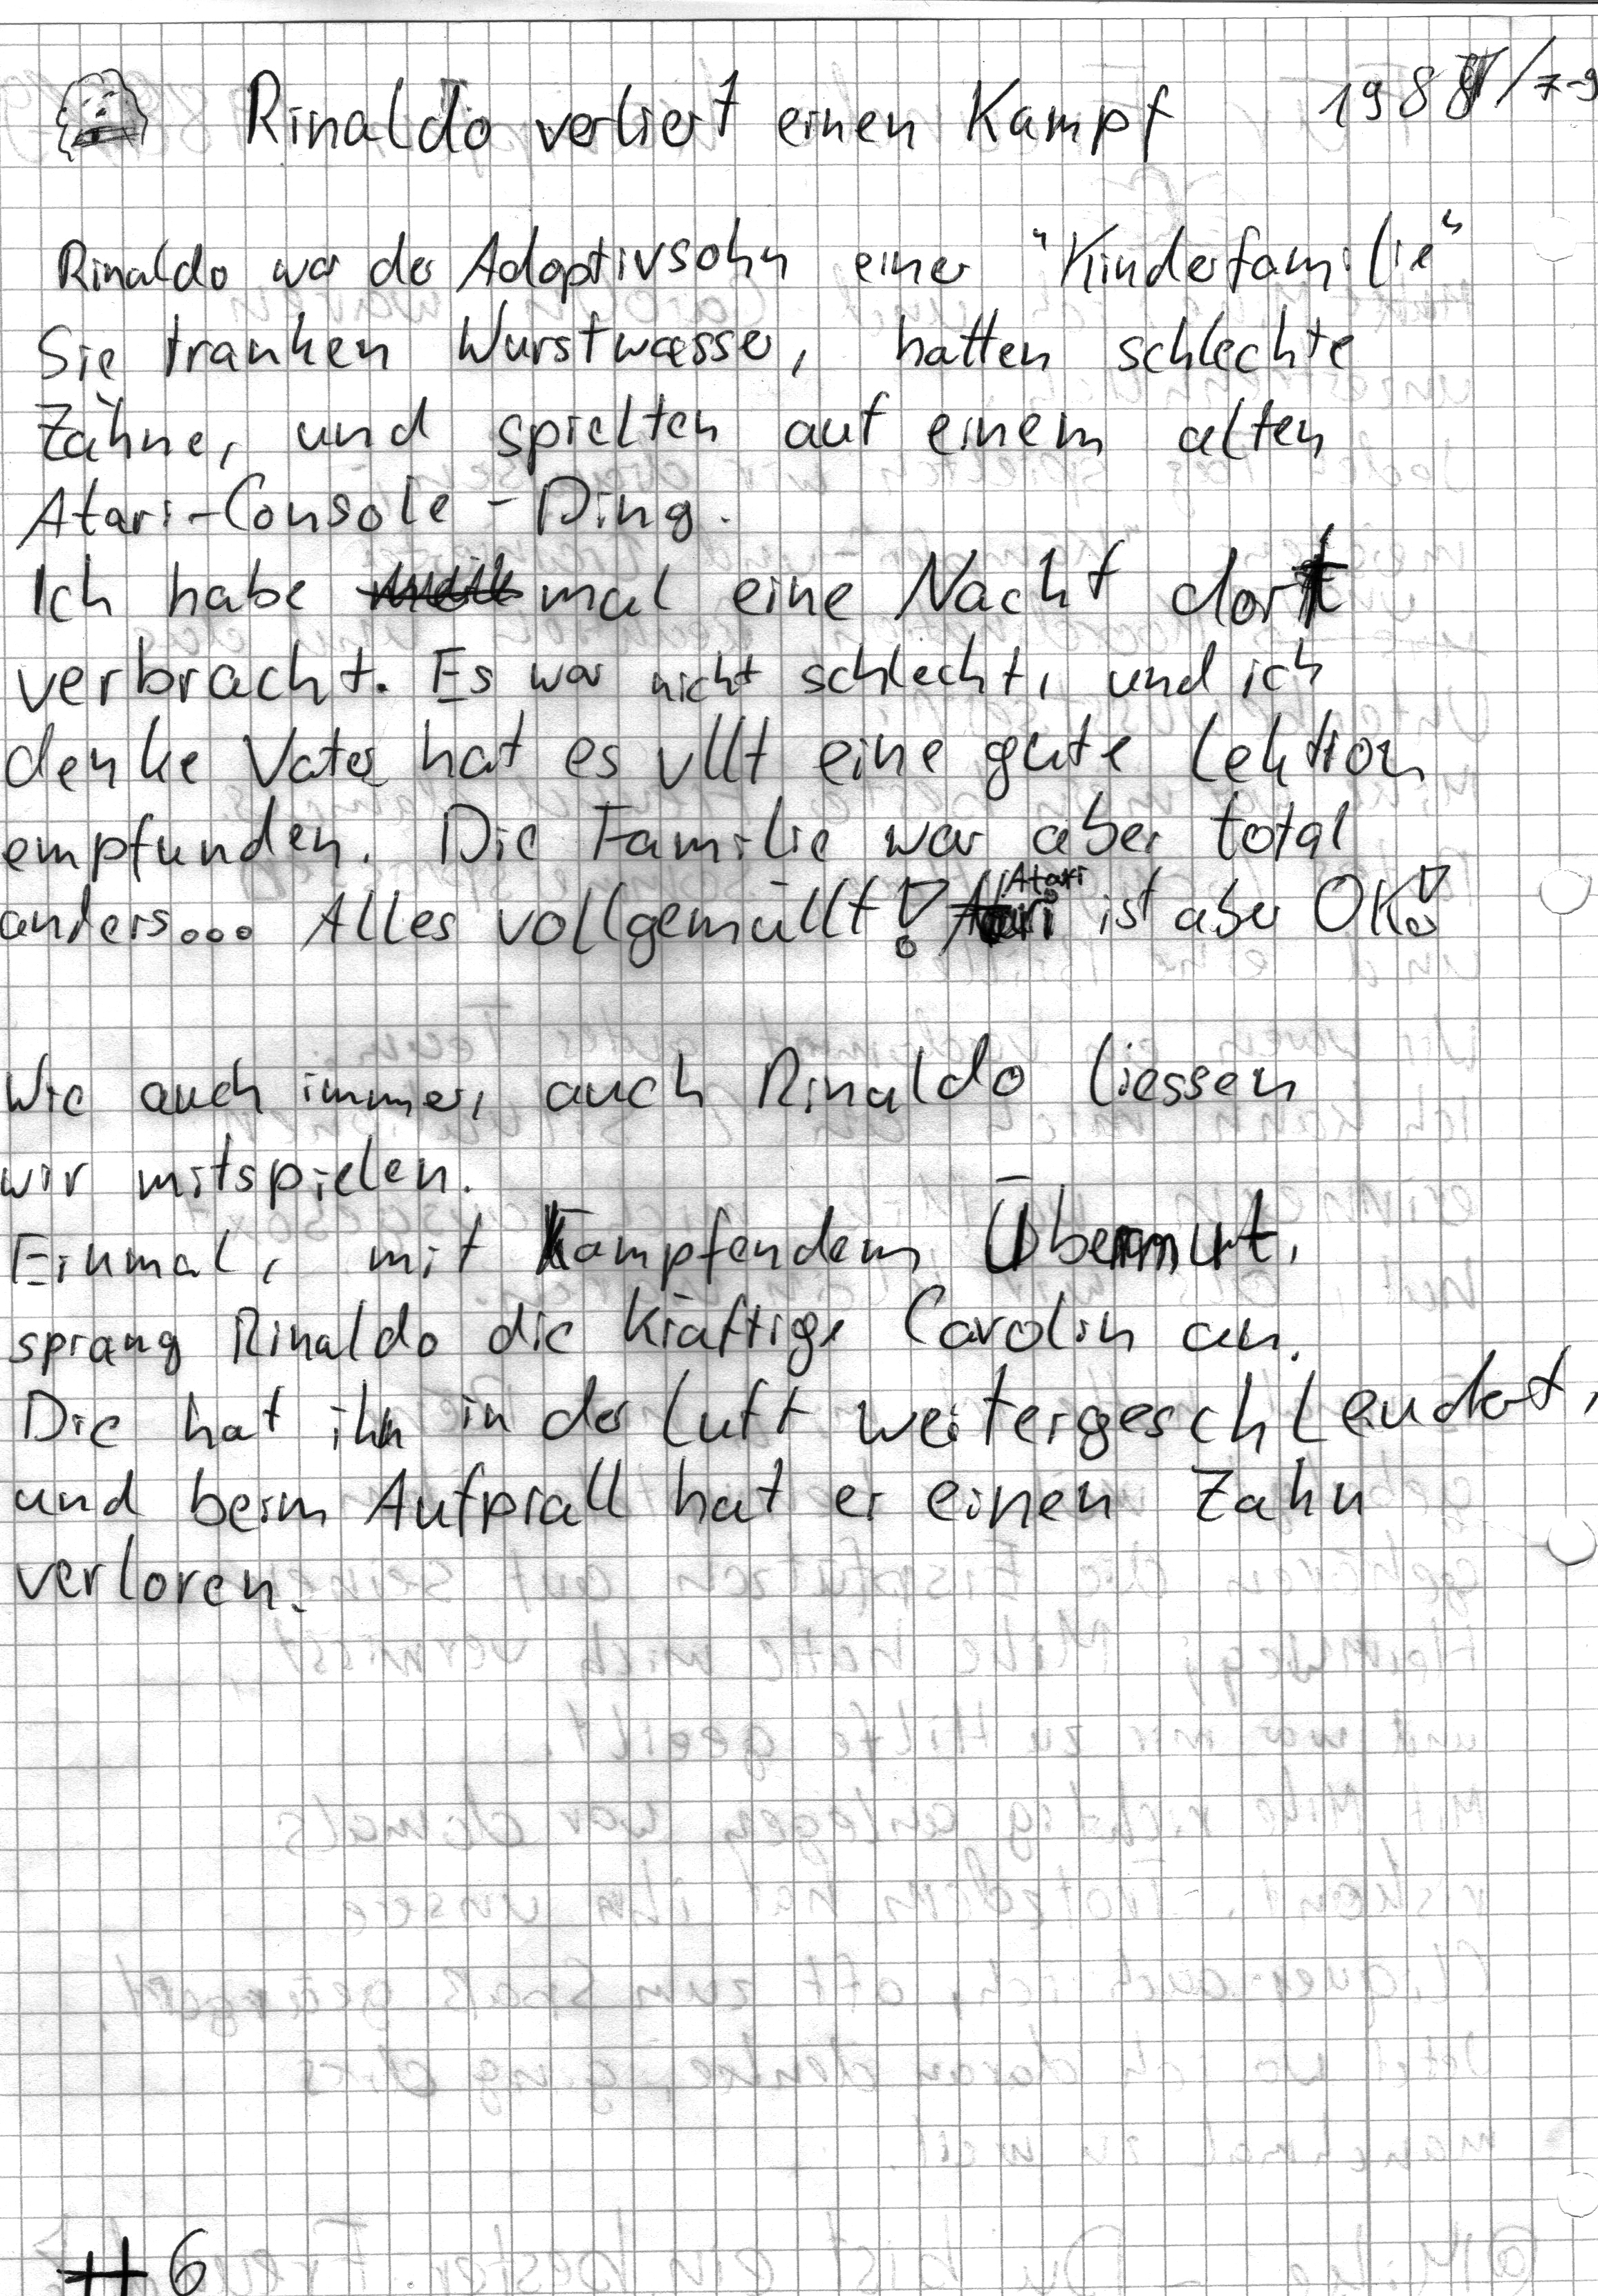 Rinaldo verliert einen Kampf 1988/7-9
Rinaldo war der Adoptivsohn einer "Kinderfamilie"
Sie tranken Wurstwasser, hatten schlechte
Zähne, und spielten auf einem alten
Atari-Console-Ding.
Ich habe mal eine Nacht dort
verbracht. Es war nicht schlecht, und ich
denke Vater hat es vllt eine gute Lektion
empfunden. Die Familie war aber total
anders... Alles vollgemüllt! Atari ist aber OK!
Wie auch immer, auch Rinaldo liessen
wir mitspielen.
Einmal, mit kampfendem Übermut,
sprang Rinaldo die kräftige Carolin an.
Die hat ihn in der Luft weitergeschleudert,
und beim Aufprall hat er einen Zahn
verloren.
#6